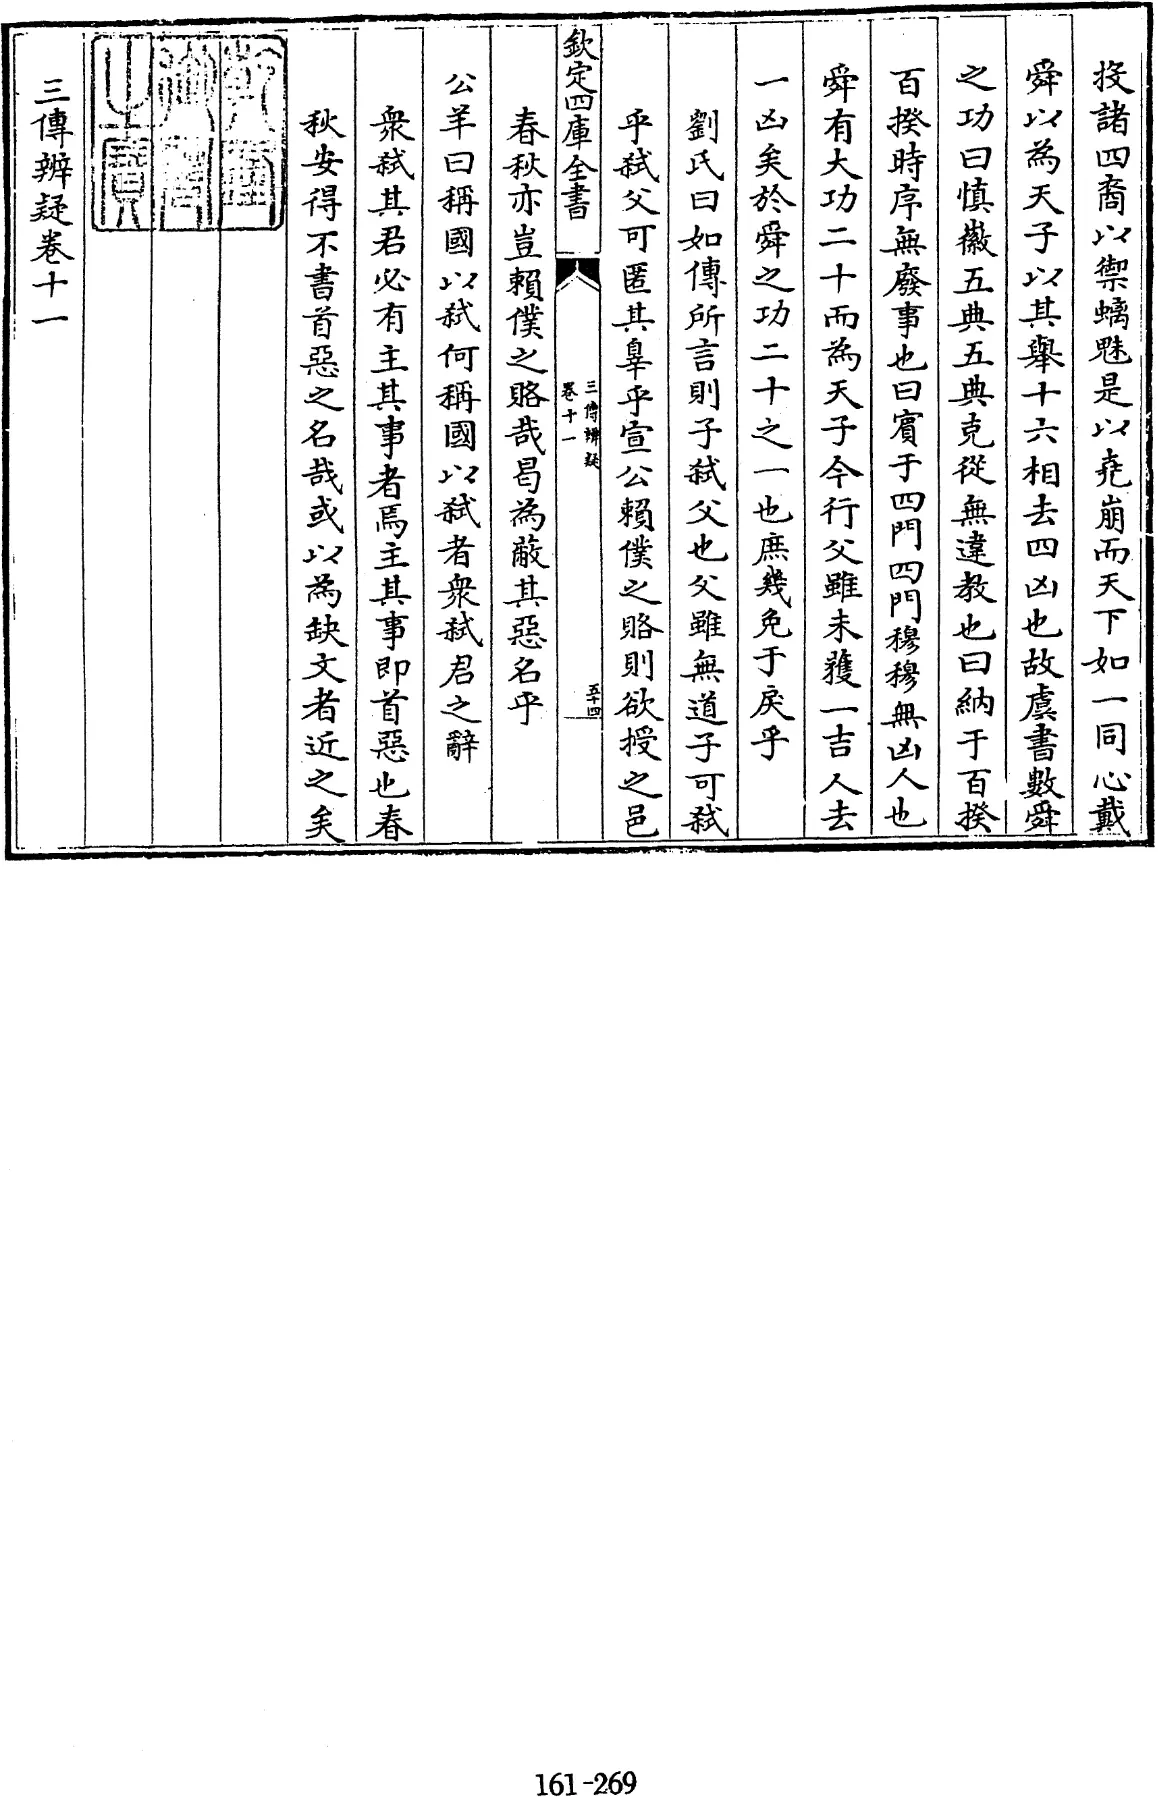 投諸四裔以禦螭魅是以堯崩而天下如一同心戴
舜以為天子以其舉十六相去四凶也故虞書數舜
之功曰慎徽五典五典克從無違教也曰納于百揆
百揆時序無廢事也曰賓于四門四門穆穆無凶人也
舜有大功二十而為天子今行父雖未獲一吉人去
一凶矣於舜之功二十之一也庶幾免于戾乎
劉氏曰如傳所言則子弑父也父雖無道子可弑
乎弑父可匿其辠乎宣公賴僕之賂則欲授之邑
欽定四庫全書
三傳辨疑
卷十一
五十四
春秋亦豈賴僕之賂哉曷為蔽其惡名乎
公羊曰稱國以弑何稱國以弑者衆弑君之辭
衆弑其君必有主其事者焉主其事即首惡也春
秋安得不書首惡之名哉或以為缺文者近之矣
三傳辨疑卷十一
161-269